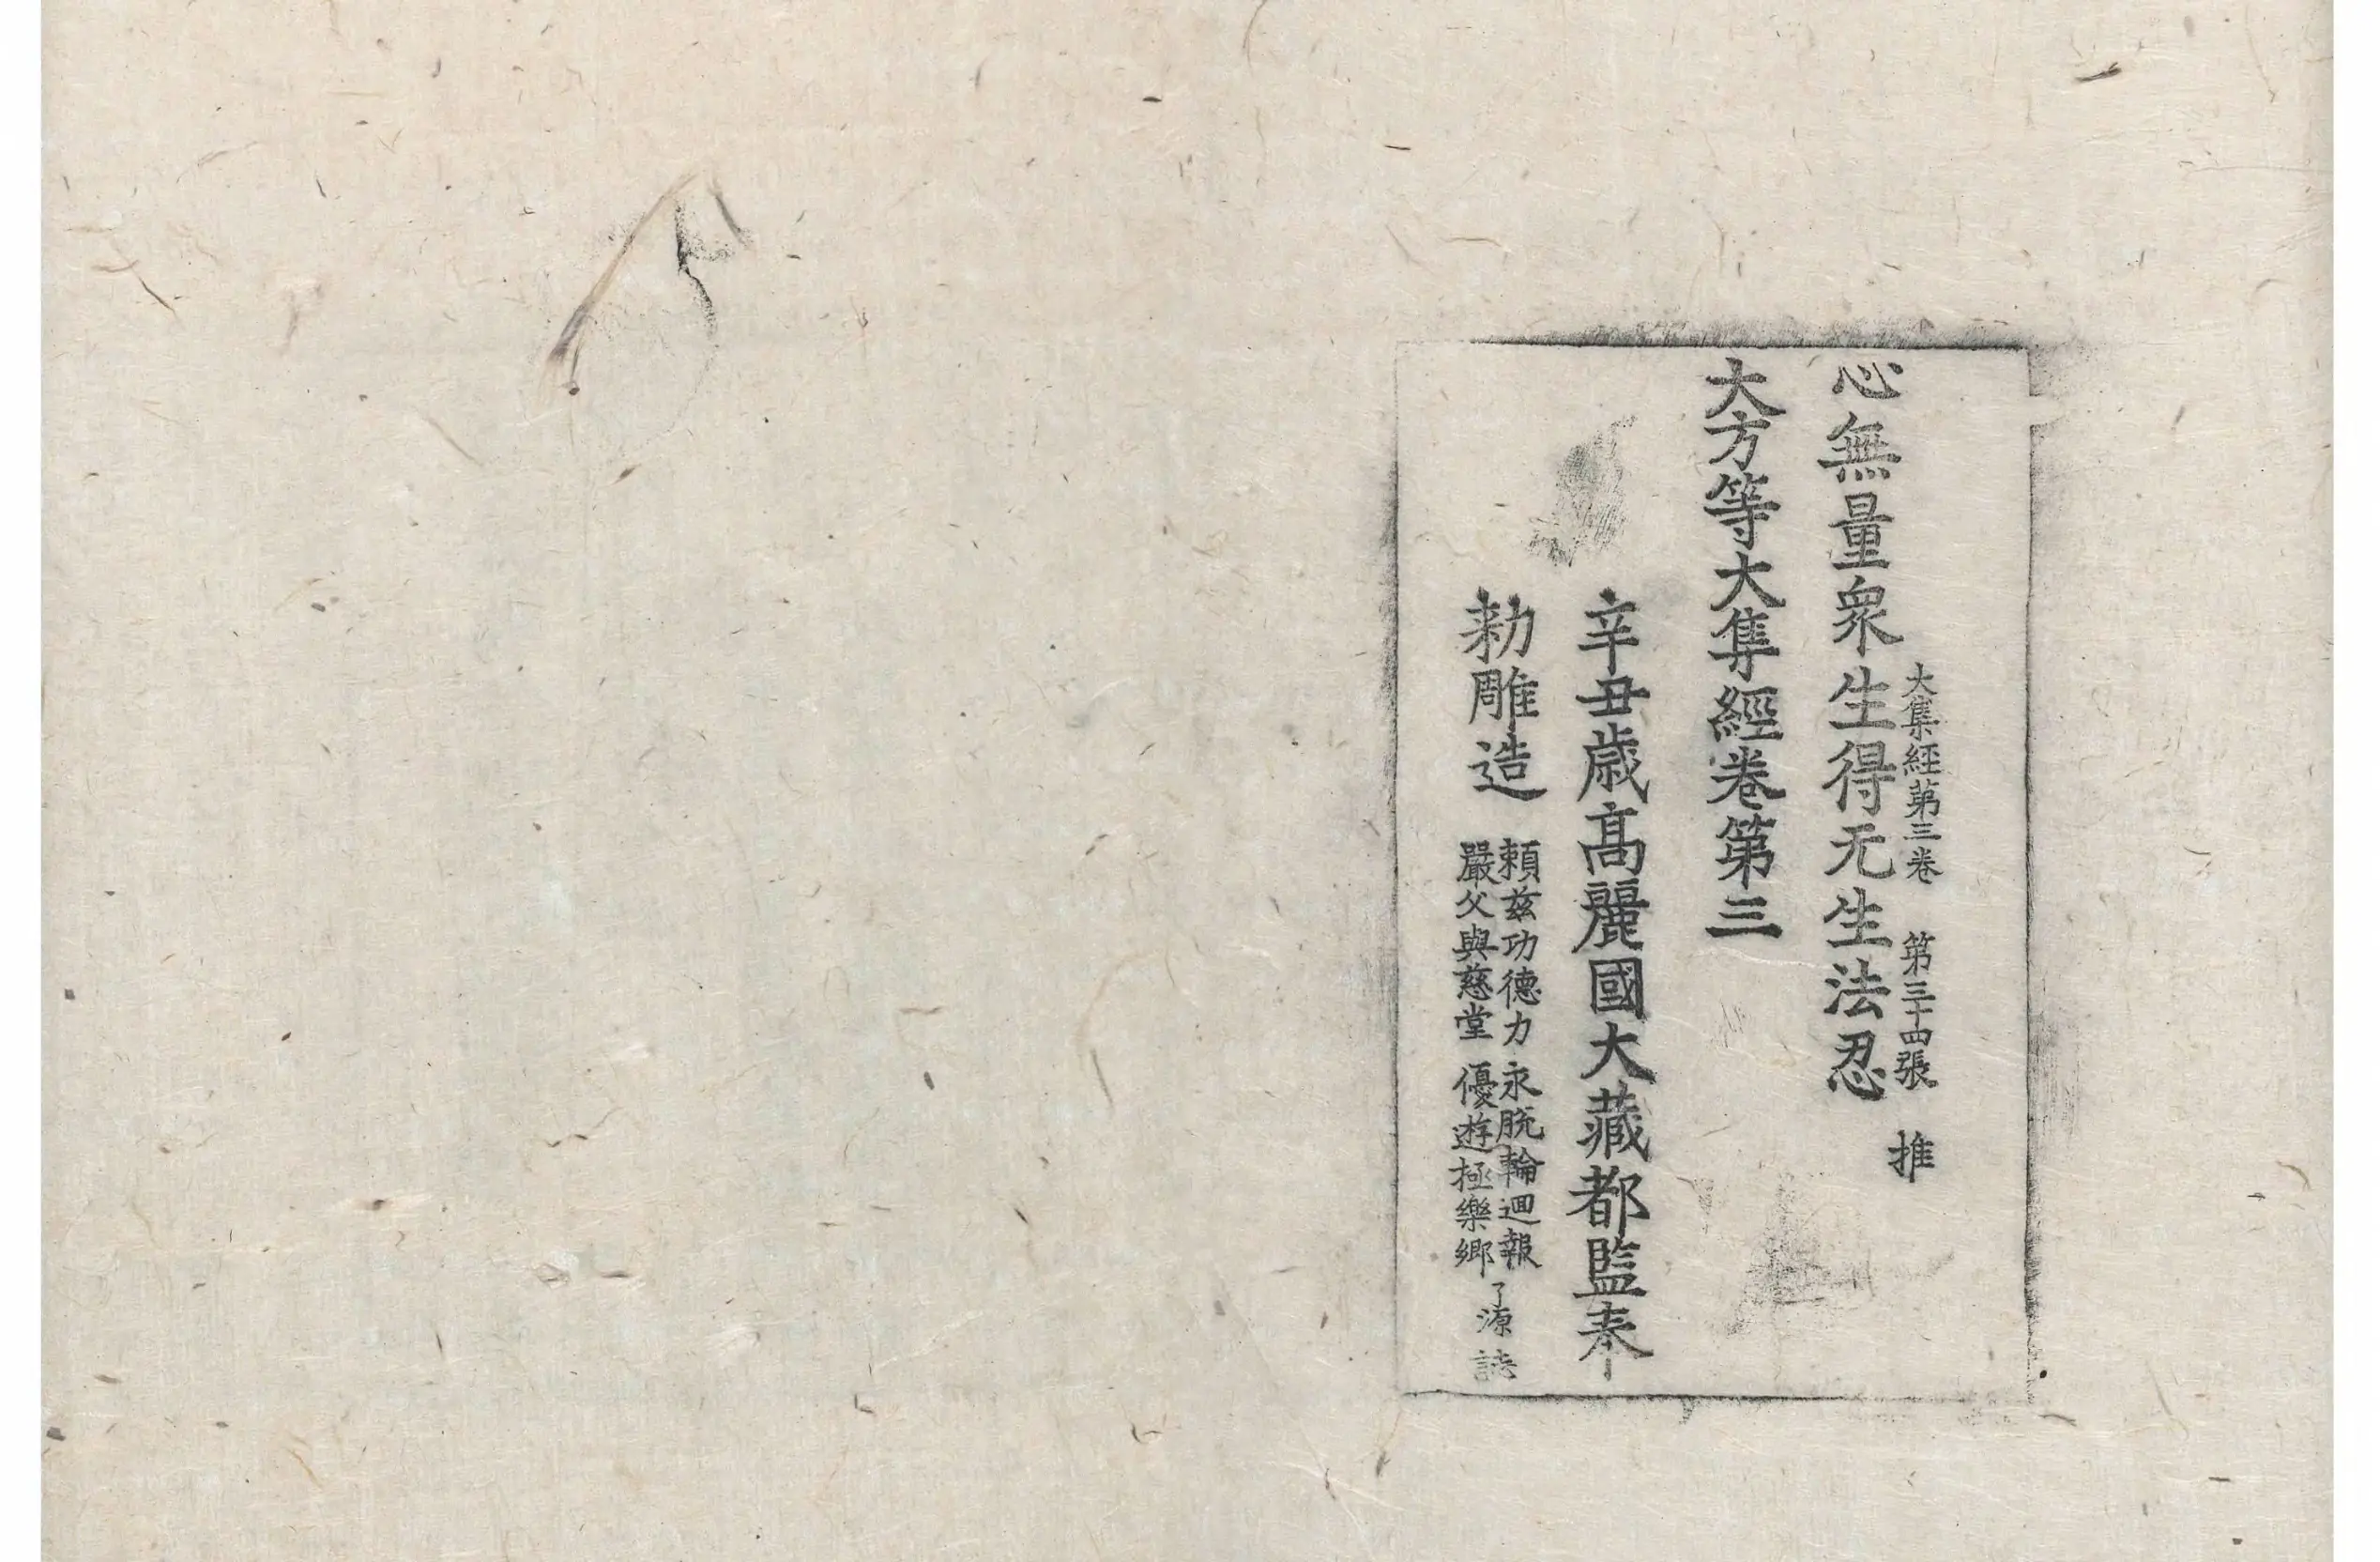 大集經第三卷 第三十四張 推
心無量衆生得无生法忍
大方等大集經卷第三
辛丑歳高麗國大藏都監奉
勑雕造
賴兹功德力 永脱輪迴報
嚴父與慈堂 優遊極樂鄉
了源誌